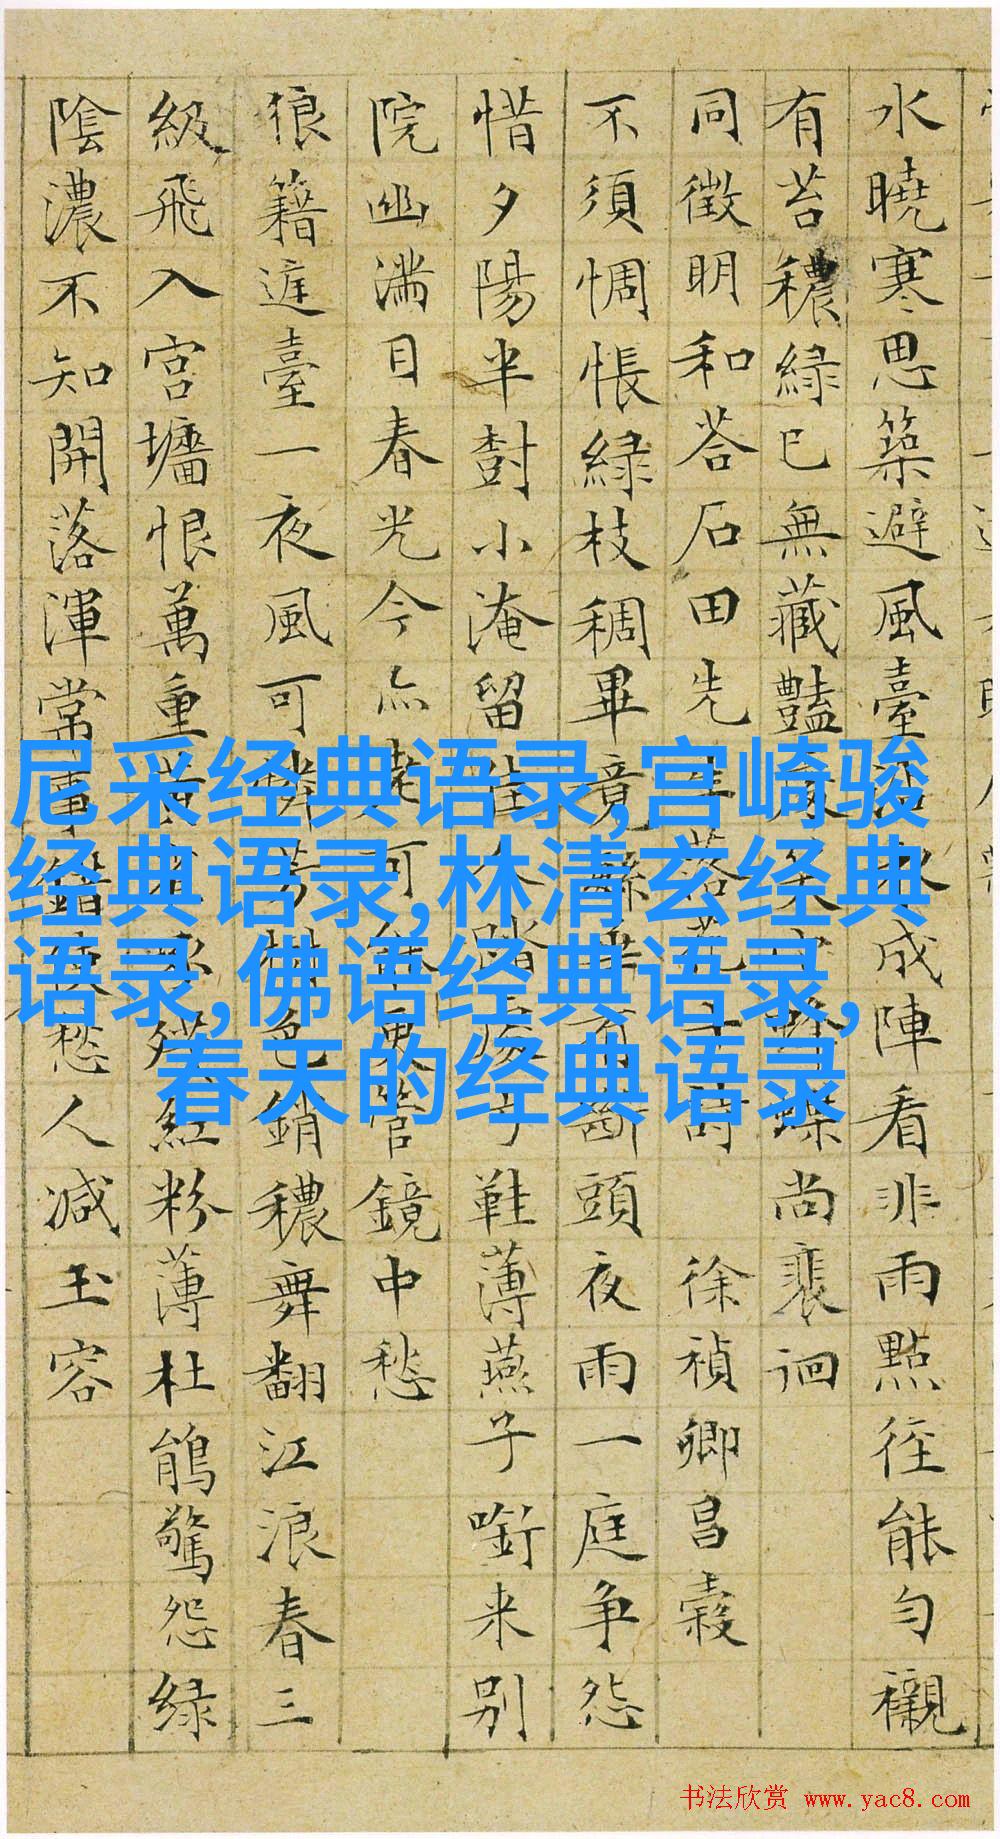 水曉寒思築避風臺成陣看非雨點徑能勻襯
有苔穠緑已無藏豔蝶尚裴徊
同徵明和荅石田先生落花十詩 徐禎卿昌穀
不須惆悵緑枝稠畢竟斷頭夜雨一庭争怨
惜夕陽半樹小淹留鞋薄燕子銜来別
院幽滿目春光今亦可更管鏡中愁
狼籍庭臺一夜風可憐芳樹色銷穠舞翻江浪春三
級飛入宫墻恨萬重紅粉薄杜鵑驚怨緑
陰濃不知開落渾常事錯愁人减玉容
尼采经典语录,宫崎骏
经典语录,林清玄经典
语录,佛语经典语录,
春天的经典语录
书法欣赏 www.yac8.com